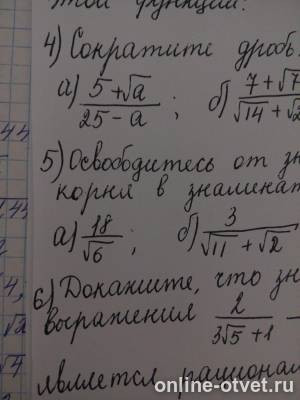 этой функции.
4) Сократите дробь
а) (5+√a)/(25-a); б) (7+√7)/(√14+√2
5) Освободитесь от зн
корня в знаменат
а) 18/√6; б) 3/(√11+√2)
6) Докажите, что зн
выражения 2/(3√5+1) -
является рационал
online-otvet.ru